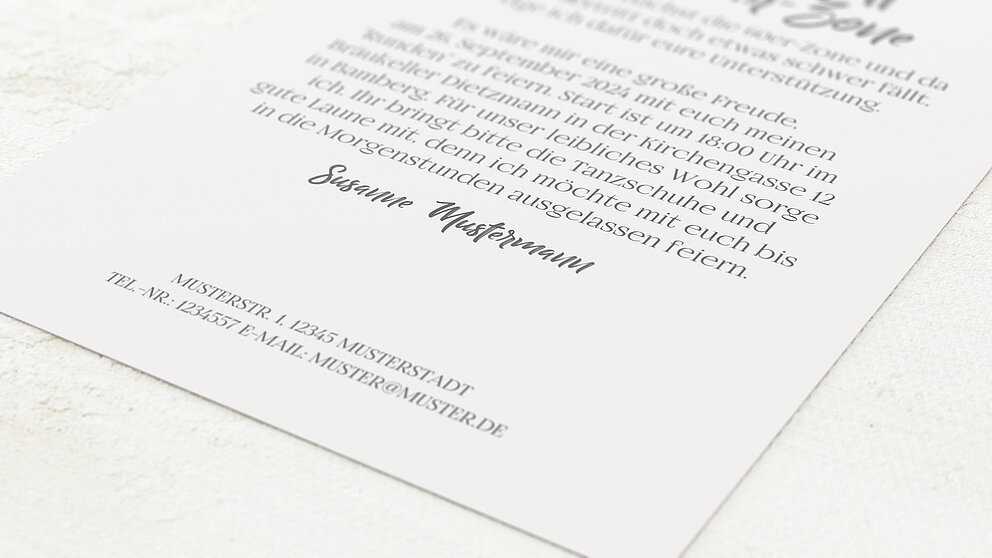 -Zone
die 60er-Zone und da
doch etwas schwer fällt,
ich dafür eure Unterstützung.
Es wäre mir eine große Freude,
am 26. September 2024 mit euch meinen
Runden zu feiern. Start ist um 18:00 Uhr im
Bräukeller Dietzmann in der Kirchengasse 12
in Bamberg. Für unser leibliches Wohl sorge
ich. Ihr bringt bitte die Tanzschuhe und
gute Laune mit, denn ich möchte mit euch bis
in die Morgenstunden ausgelassen feiern.
Susanne Mustermann
MUSTERSTR. 1, 12345 MUSTERSTADT
TEL.-NR.: 1234557 E-MAIL: MUSTER@MUSTER.DE